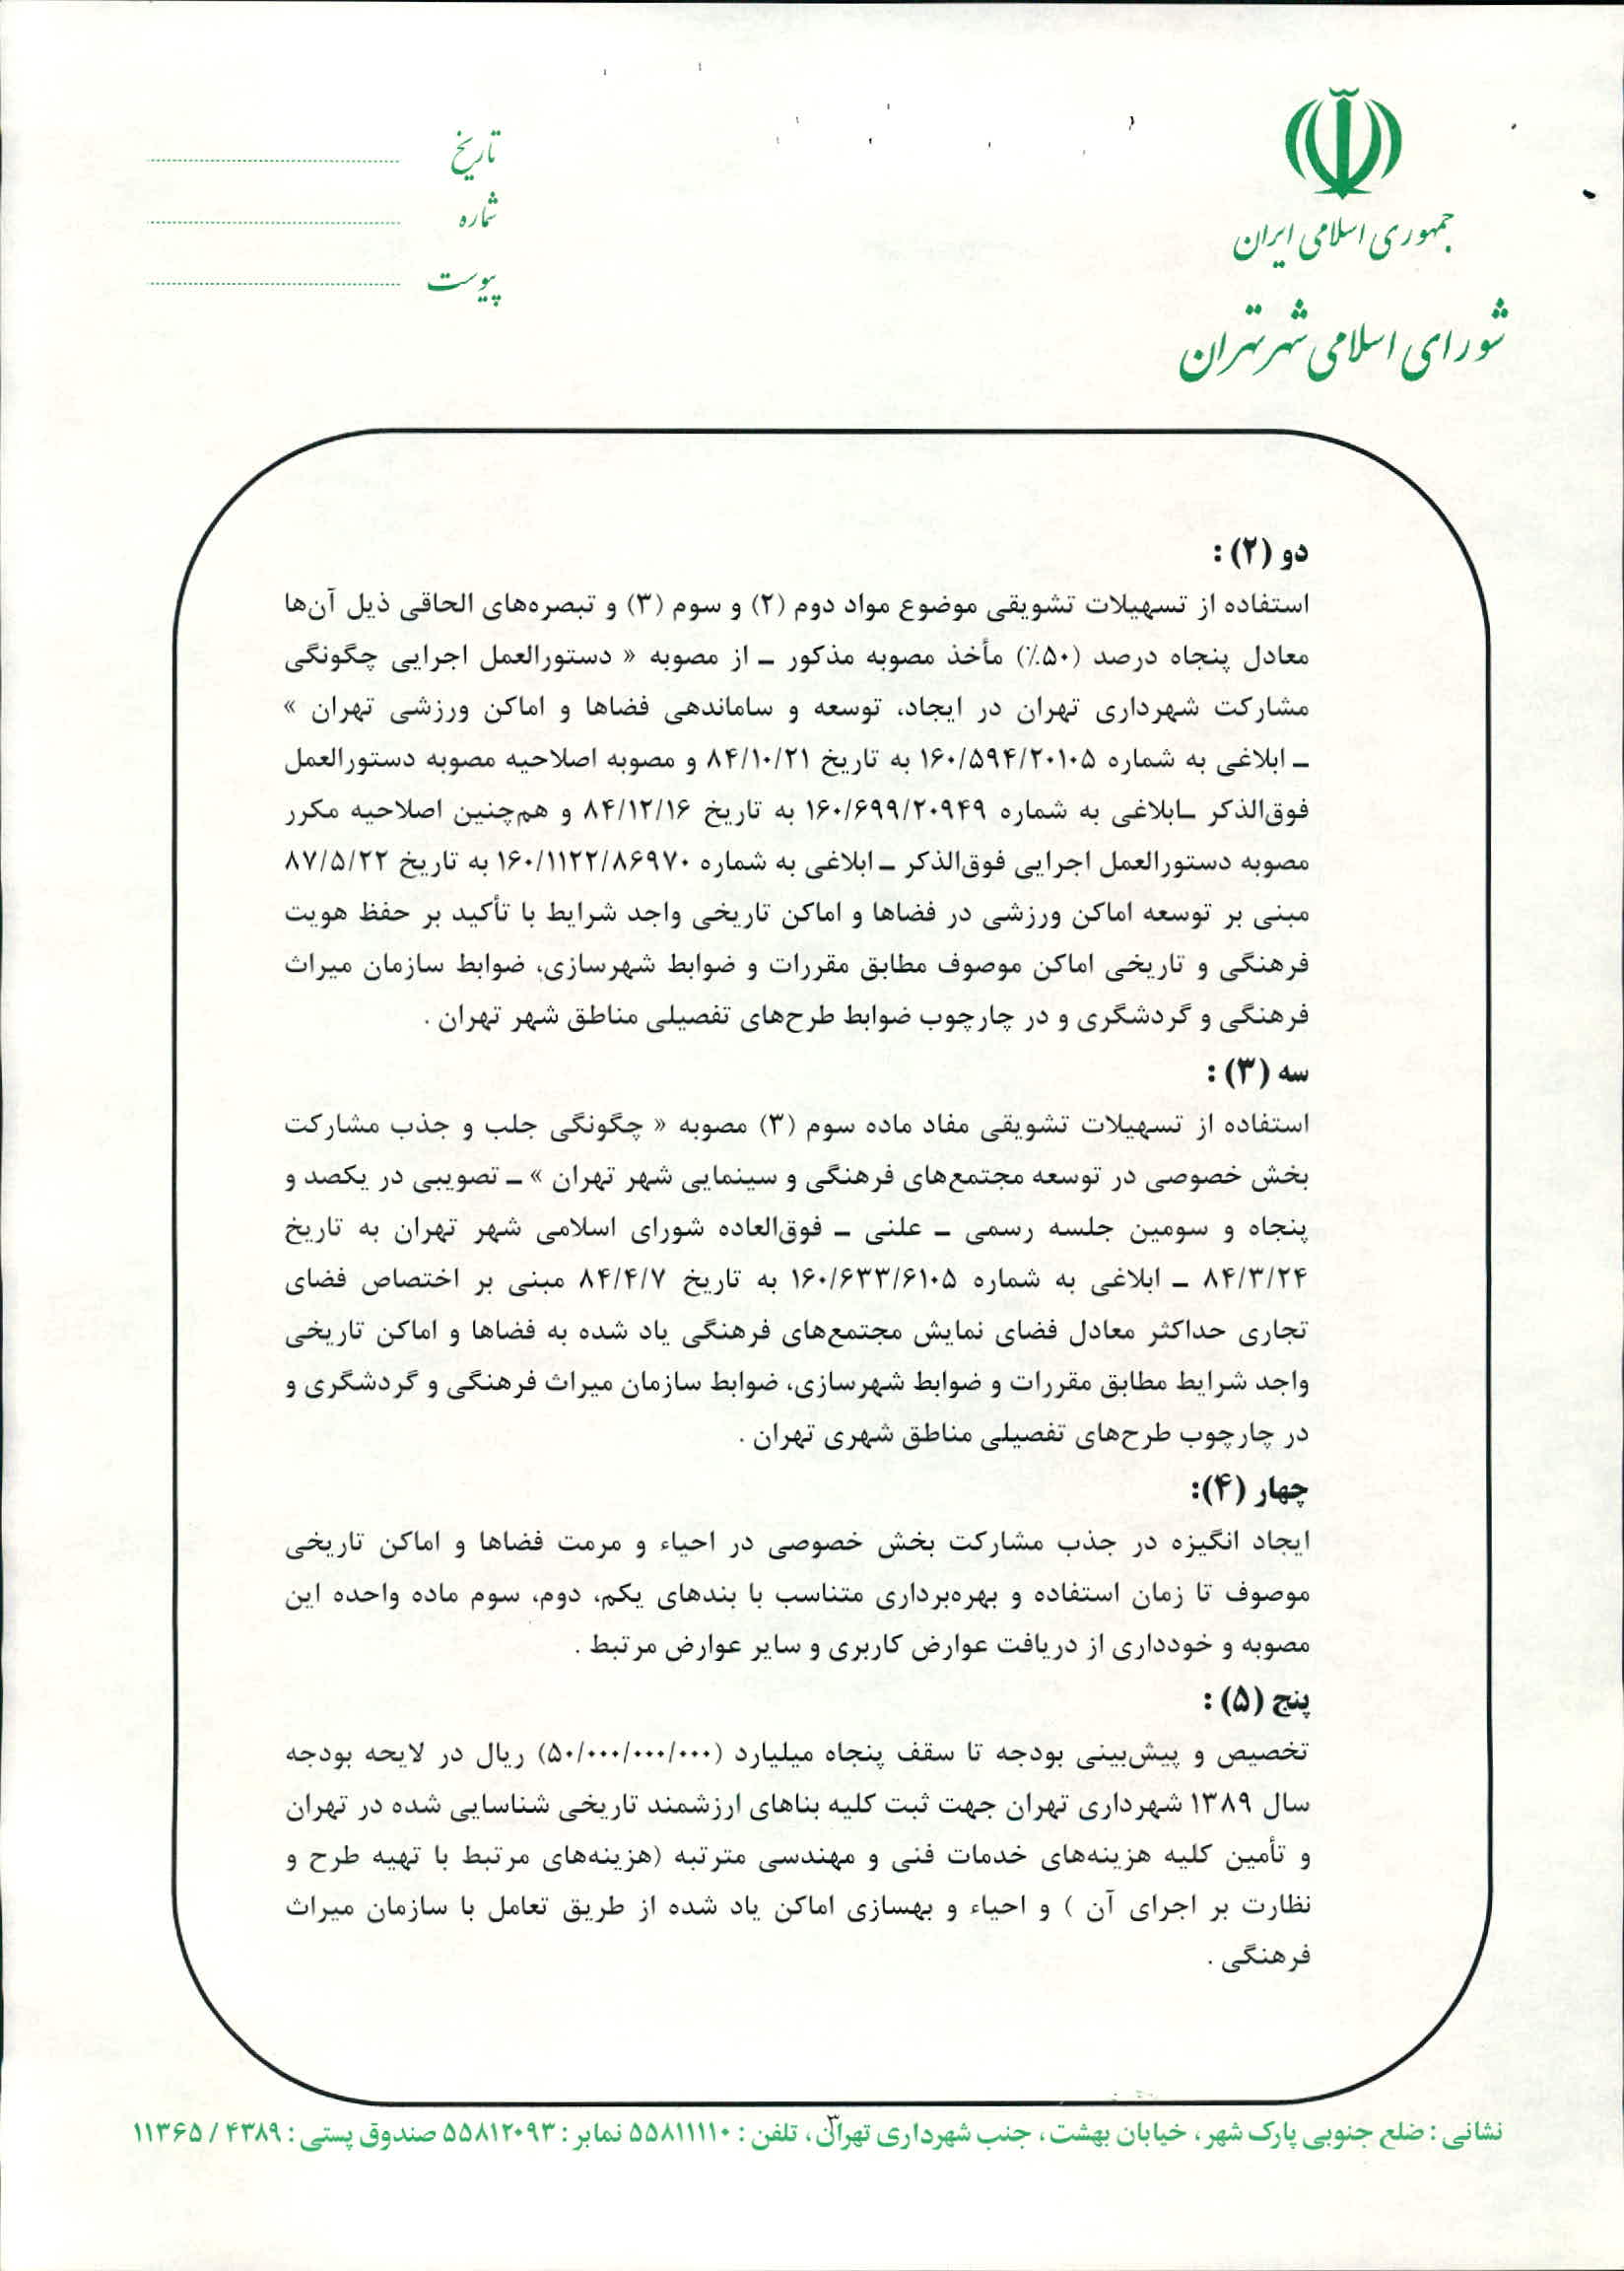 جمهوری اسلامی ایران
شورای اسلامی شهر تهران
تاریخ
شماره
پیوست
دو (۲) :
استفاده از تسهیلات تشویقی موضوع مواد دوم (۲) و سوم (۳) و تبصره‌های الحاقی ذیل آن‌ها
معادل پنجاه درصد (۵۰٪) مأخذ مصوبه مذکور ـ از مصوبه « دستورالعمل اجرایی چگونگی
مشارکت شهرداری تهران در ایجاد، توسعه و ساماندهی فضاها و اماکن ورزشی تهران »
ـ ابلاغی به شماره ۱۶۰/۵۹۴/۲۰۱۰۵ به تاریخ ۸۴/۱۰/۲۱ و مصوبه اصلاحیه مصوبه دستورالعمل
فوق‌الذکر ـابلاغی به شماره ۱۶۰/۶۹۹/۲۰۹۴۹ به تاریخ ۸۴/۱۲/۱۶ و هم‌چنین اصلاحیه مکرر
مصوبه دستورالعمل اجرایی فوق‌الذکر ـ ابلاغی به شماره ۱۶۰/۱۱۲۲/۸۶۹۷۰ به تاریخ ۸۷/۵/۲۲
مبنی بر توسعه اماکن ورزشی در فضاها و اماکن تاریخی واجد شرایط با تأکید بر حفظ هویت
فرهنگی و تاریخی اماکن موصوف مطابق مقررات و ضوابط شهرسازی، ضوابط سازمان میراث
فرهنگی و گردشگری و در چارچوب ضوابط طرح‌های تفصیلی مناطق شهر تهران .
سه (۳) :
استفاده از تسهیلات تشویقی مفاد ماده سوم (۳) مصوبه « چگونگی جلب و جذب مشارکت
بخش خصوصی در توسعه مجتمع‌های فرهنگی و سینمایی شهر تهران » ـ تصویبی در یکصد و
پنجاه و سومین جلسه رسمی ـ علنی ـ فوق‌العاده شورای اسلامی شهر تهران به تاریخ
۸۴/۳/۲۴ ـ ابلاغی به شماره ۱۶۰/۶۳۳/۶۱۰۵ به تاریخ ۸۴/۴/۷ مبنی بر اختصاص فضای
تجاری حداکثر معادل فضای نمایش مجتمع‌های فرهنگی یاد شده به فضاها و اماکن تاریخی
واجد شرایط مطابق مقررات و ضوابط شهرسازی، ضوابط سازمان میراث فرهنگی و گردشگری و
در چارچوب طرح‌های تفصیلی مناطق شهری تهران .
چهار (۴):
ایجاد انگیزه در جذب مشارکت بخش خصوصی در احیاء و مرمت فضاها و اماکن تاریخی
موصوف تا زمان استفاده و بهره‌برداری متناسب با بندهای یکم، دوم، سوم ماده واحده این
مصوبه و خودداری از دریافت عوارض کاربری و سایر عوارض مرتبط .
پنج (۵) :
تخصیص و پیش‌بینی بودجه تا سقف پنجاه میلیارد (۵۰/۰۰۰/۰۰۰/۰۰۰) ریال در لایحه بودجه
سال ۱۳۸۹ شهرداری تهران جهت ثبت کلیه بناهای ارزشمند تاریخی شناسایی شده در تهران
و تأمین کلیه هزینه‌های خدمات فنی و مهندسی مترتبه (هزینه‌های مرتبط با تهیه طرح و
نظارت بر اجرای آن ) و احیاء و بهسازی اماکن یاد شده از طریق تعامل با سازمان میراث
فرهنگی .
۳
نشانی : ضلع جنوبی پارک شهر ، خیابان بهشت ، جنب شهرداری تهران ، تلفن : ۵۵۸۱۱۱۱۰ نمابر : ۵۵۸۱۲۰۹۳ صندوق پستی : ۴۳۸۹ / ۱۱۳۶۵